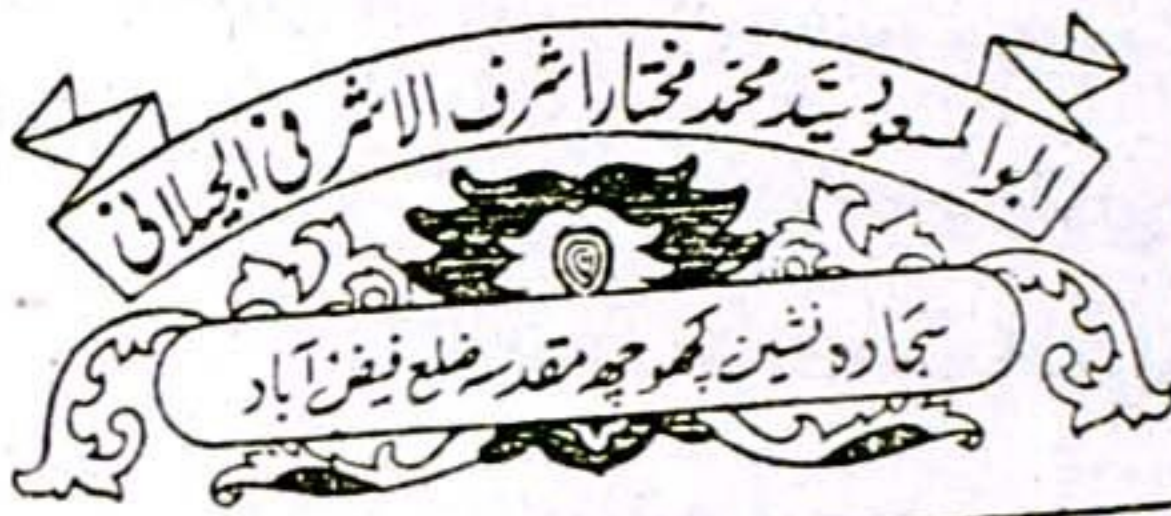 ابوالمسعود سیّد محمّد مختار اشرف الاشرفی الجیلانی
سجادہ نشین کچھوچھہ مقدسہ ضلع فیض آباد